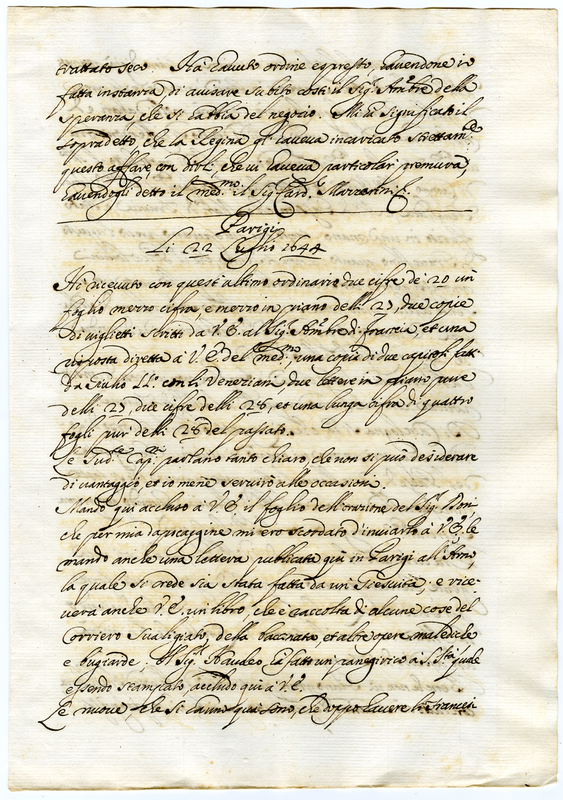 trattato seco. Ha havuto ordine espresso, havendone io
fatta instanza di avisare subito costi il Sigr. Ambre della
speranza che si habbia del negocio. Mi ha significato il
sopradetto, che la Regina gl'haveva incaricato strettamte
questo affare, con dirli, che vi haveva particolar premura,
havendogli detto il medmo. il Sigr Cardl. Mazzarini.
Parigi
Li 22 Luglio 1644
Hò ricevuto con quest'ultimo ordinario due cifre de 20 un
foglio mezzo cifra e mezzo in piano delli 25, due copie
di viglietti scritti da V.E. al Sigr. Ambre di Francia, et una
risposta diretta à V.E. del medmo, una copia di due capitoli fatti
da Giulio II. con li Veneziani due lettere in piano pure
delli 25, due cifre delli 28, et una lunga cifra di quattro
fogli pur delli 28 del passato.
Le Sude. Capni. parlano tanto chiaro, che non si può desiderare
di vantaggio, et io mene serviró alle occasioni.
Mando qui accluso à V.E. il foglio dell'orazione del Sigr.
che per mia dapocaggine mi ero scordato d'inviarlo à V.E., le
mando anche una lettera publicata quì in Parigi all'
la quale si crede sia stata fatta da un Giesuita, e rice-
verà anche V.E. un libro, che è raccolta di alcune cose del
Corriero Svaligiato, della baccinata, et altre opere malediche
e bugiarde; Il Sigr Naudeo, hà fatto un panegirico à S. Sta. quale
essendo stampato, accludo qui à V.E.
Le nuove che si hanno qui sono, che doppo havere li Francesi